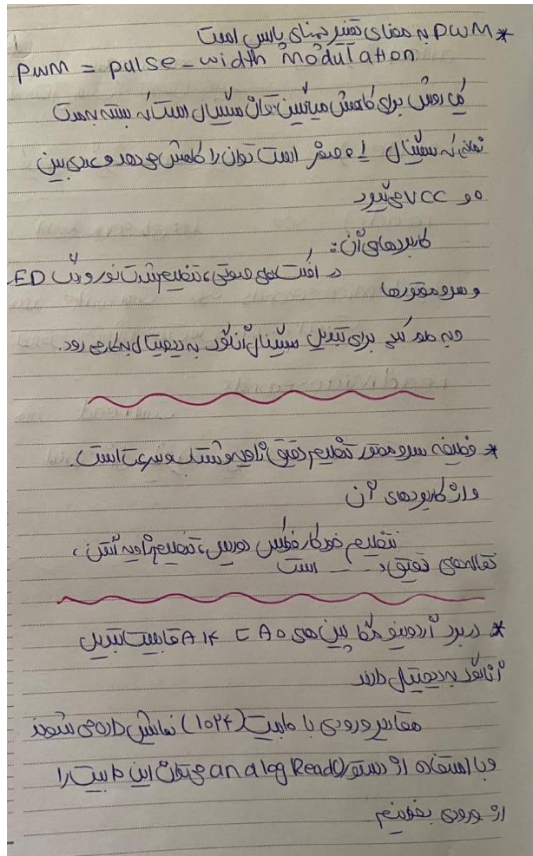 * PWM به معنای تغییر پهنای پالس است
PWM = pulse-width modulation
یک روش برای کاهش میانگین توان سیگنال است که بسته به مدت
زمانی که سیگنال 1 و صفر است توان را کاهش می دهد و عددی بین
0 و VCC می شود
کاربردهای آن:
در افکت های صوتی، تنظیم شدت نور و رنگ LED
و سرو موتورها
و به طور کلی برای تبدیل سیگنال آنالوگ به دیجیتال بکار می رود.
* وظیفه سرو موتور تنظیم دقیق زاویه و شتاب و سرعت است.
و از کاربردهای آن
تنظیم خودکار فوکوس دوربین، تنظیم زاویه آنتن،
های دقیق و ... است
* در برد آردوینو مگا پین های A0 تا A14 قابلیت تبدیل
آنالوگ به دیجیتال دارند
مقادیر ورودی با ده بیت (1024) نمایش داده می شوند
و با استفاده از دستور analogRead() می توان این ده بیت را
از ورودی بخوانیم